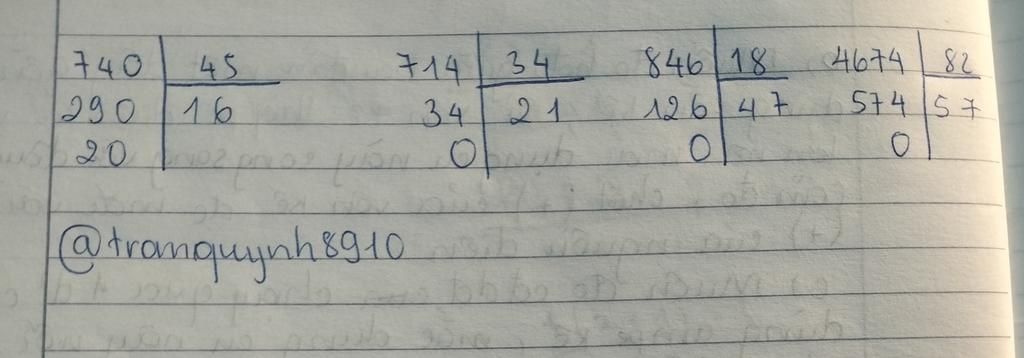 740 45 714 34 846 18 4674 82
290 16 34 21 126 47 574 57
20 0 0 0
@tranquynh8910